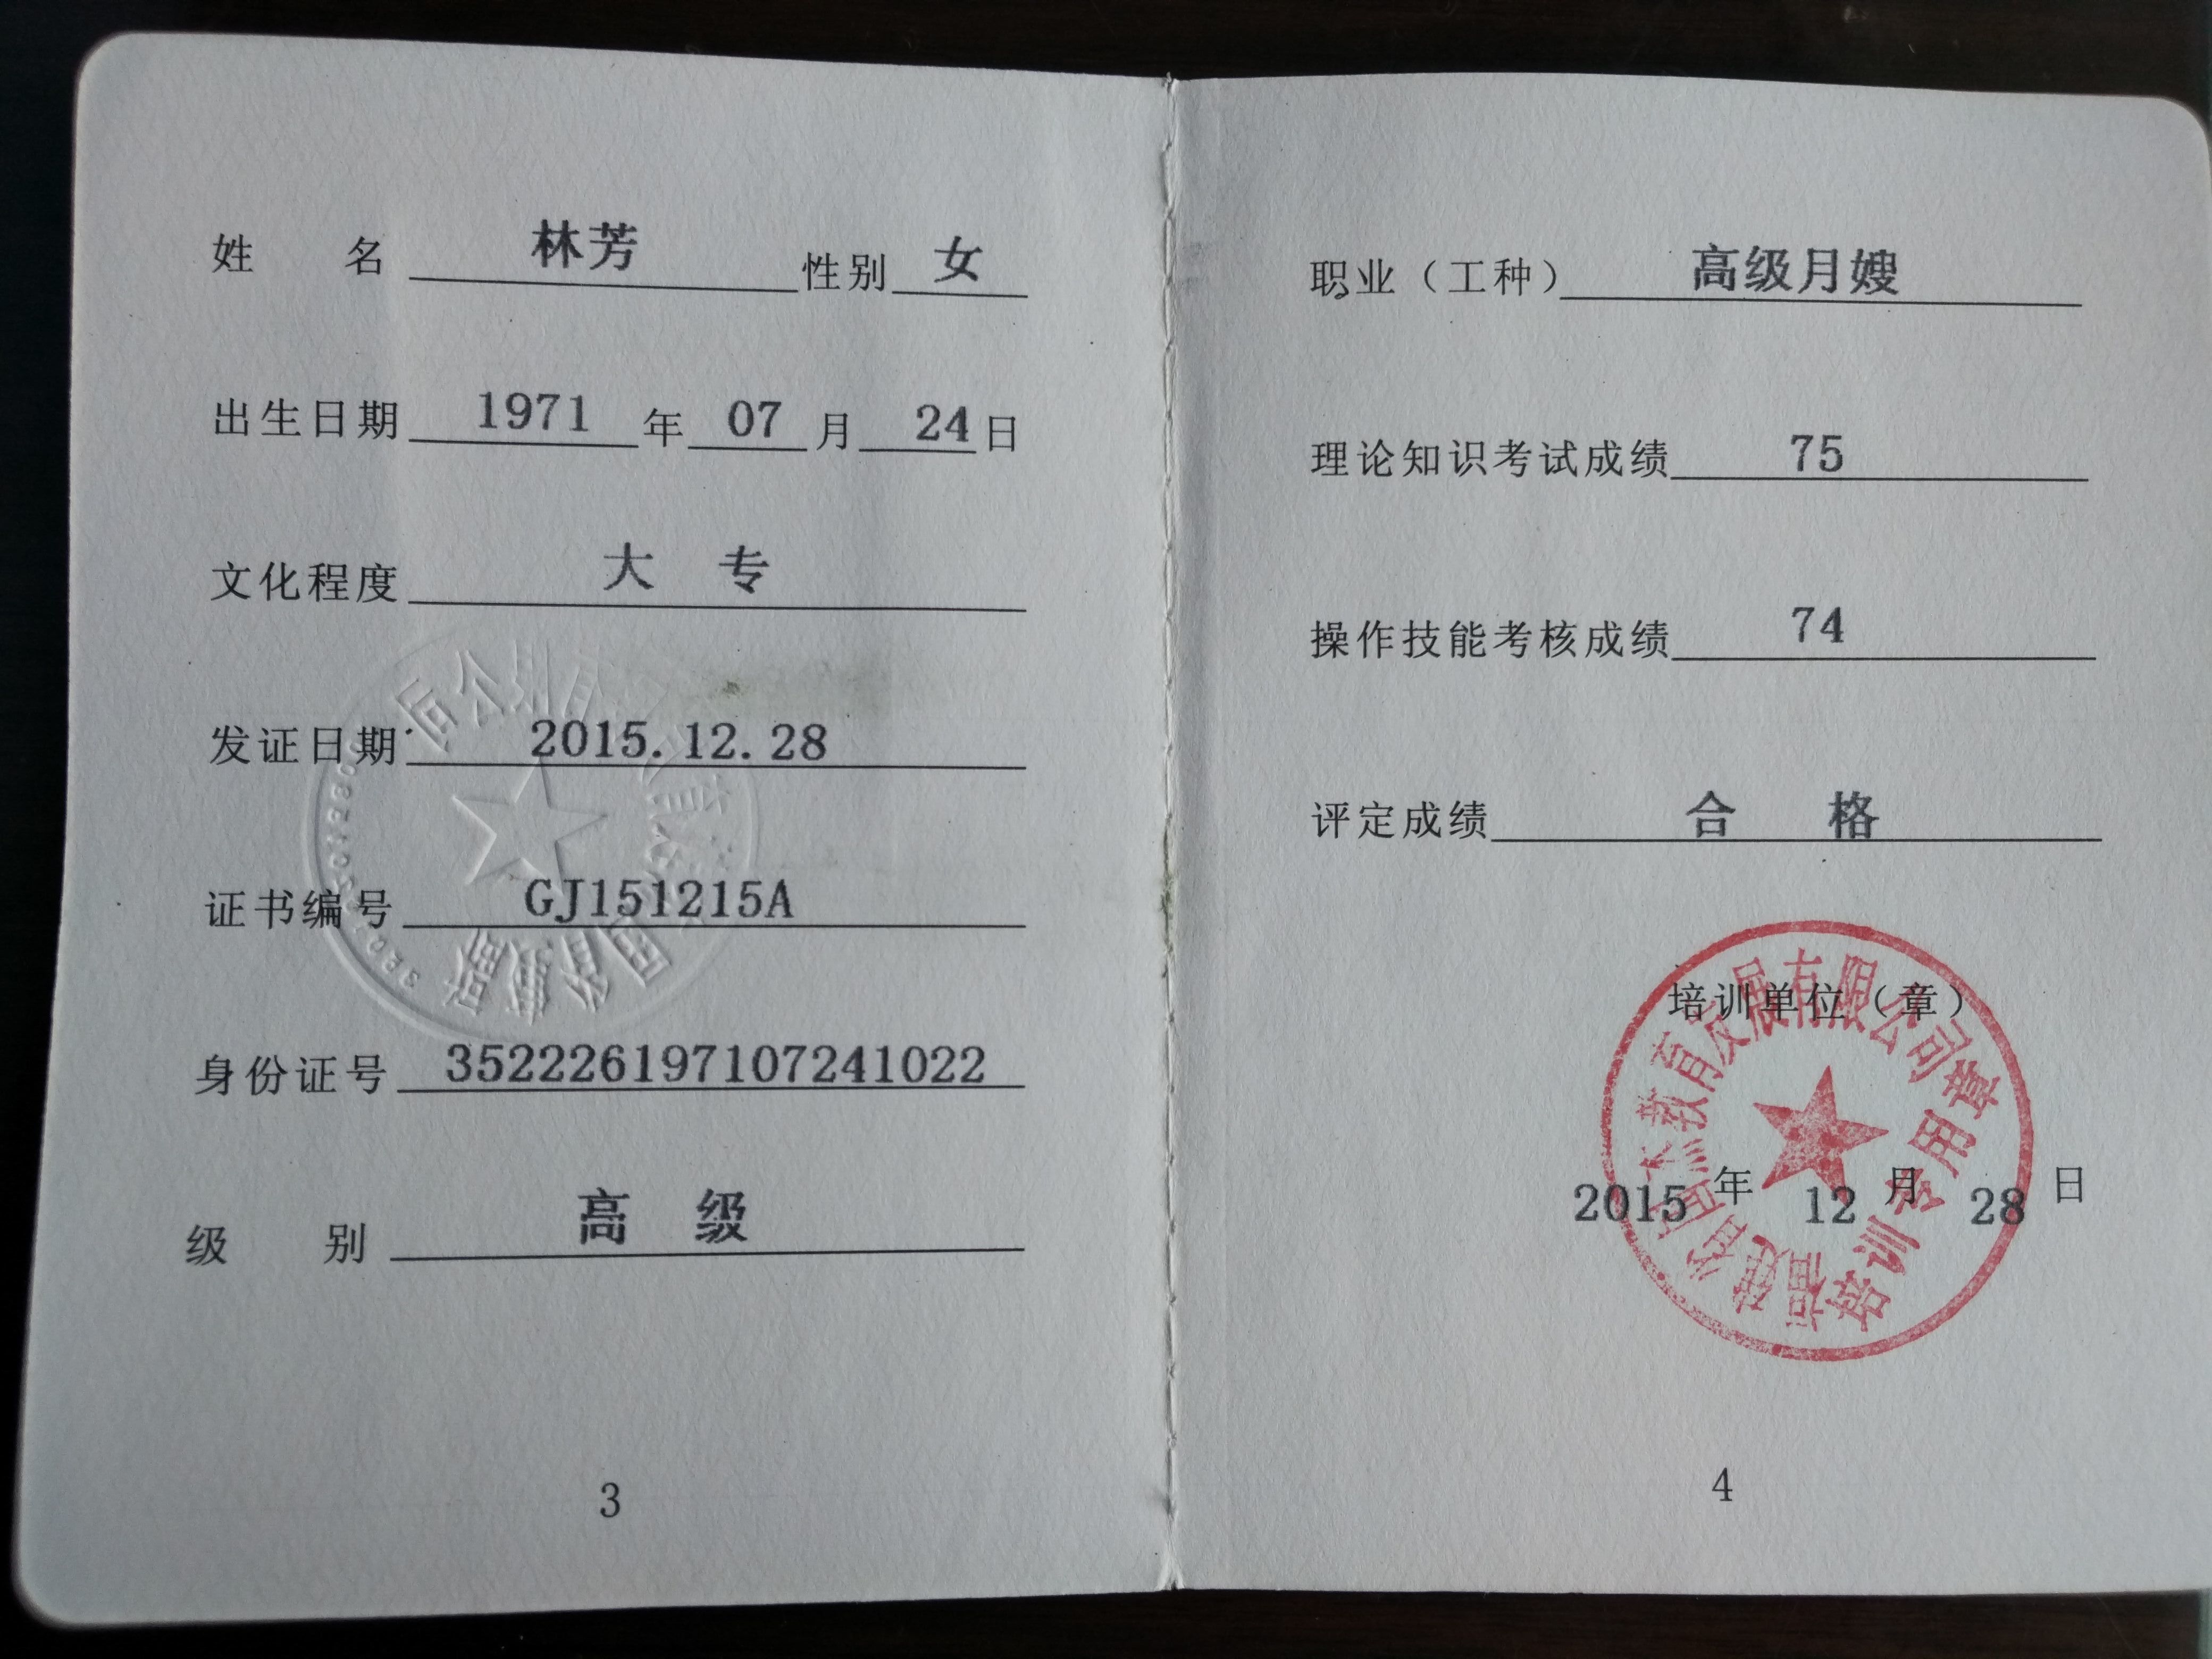 姓 名 林芳 性别 女
出生日期 1971 年 07 月 24 日
文化程度 大 专
发证日期 2015.12.28
证书编号 GJ151215A
身份证号 352226197107241022
级 别 高 级
3
职业（工种） 高级月嫂
理论知识考试成绩 75
操作技能考核成绩 74
评定成绩 合 格
培训单位（章）
福建省国杰教育发展有限公司
培训专用章
2015 年 12 月 28 日
4